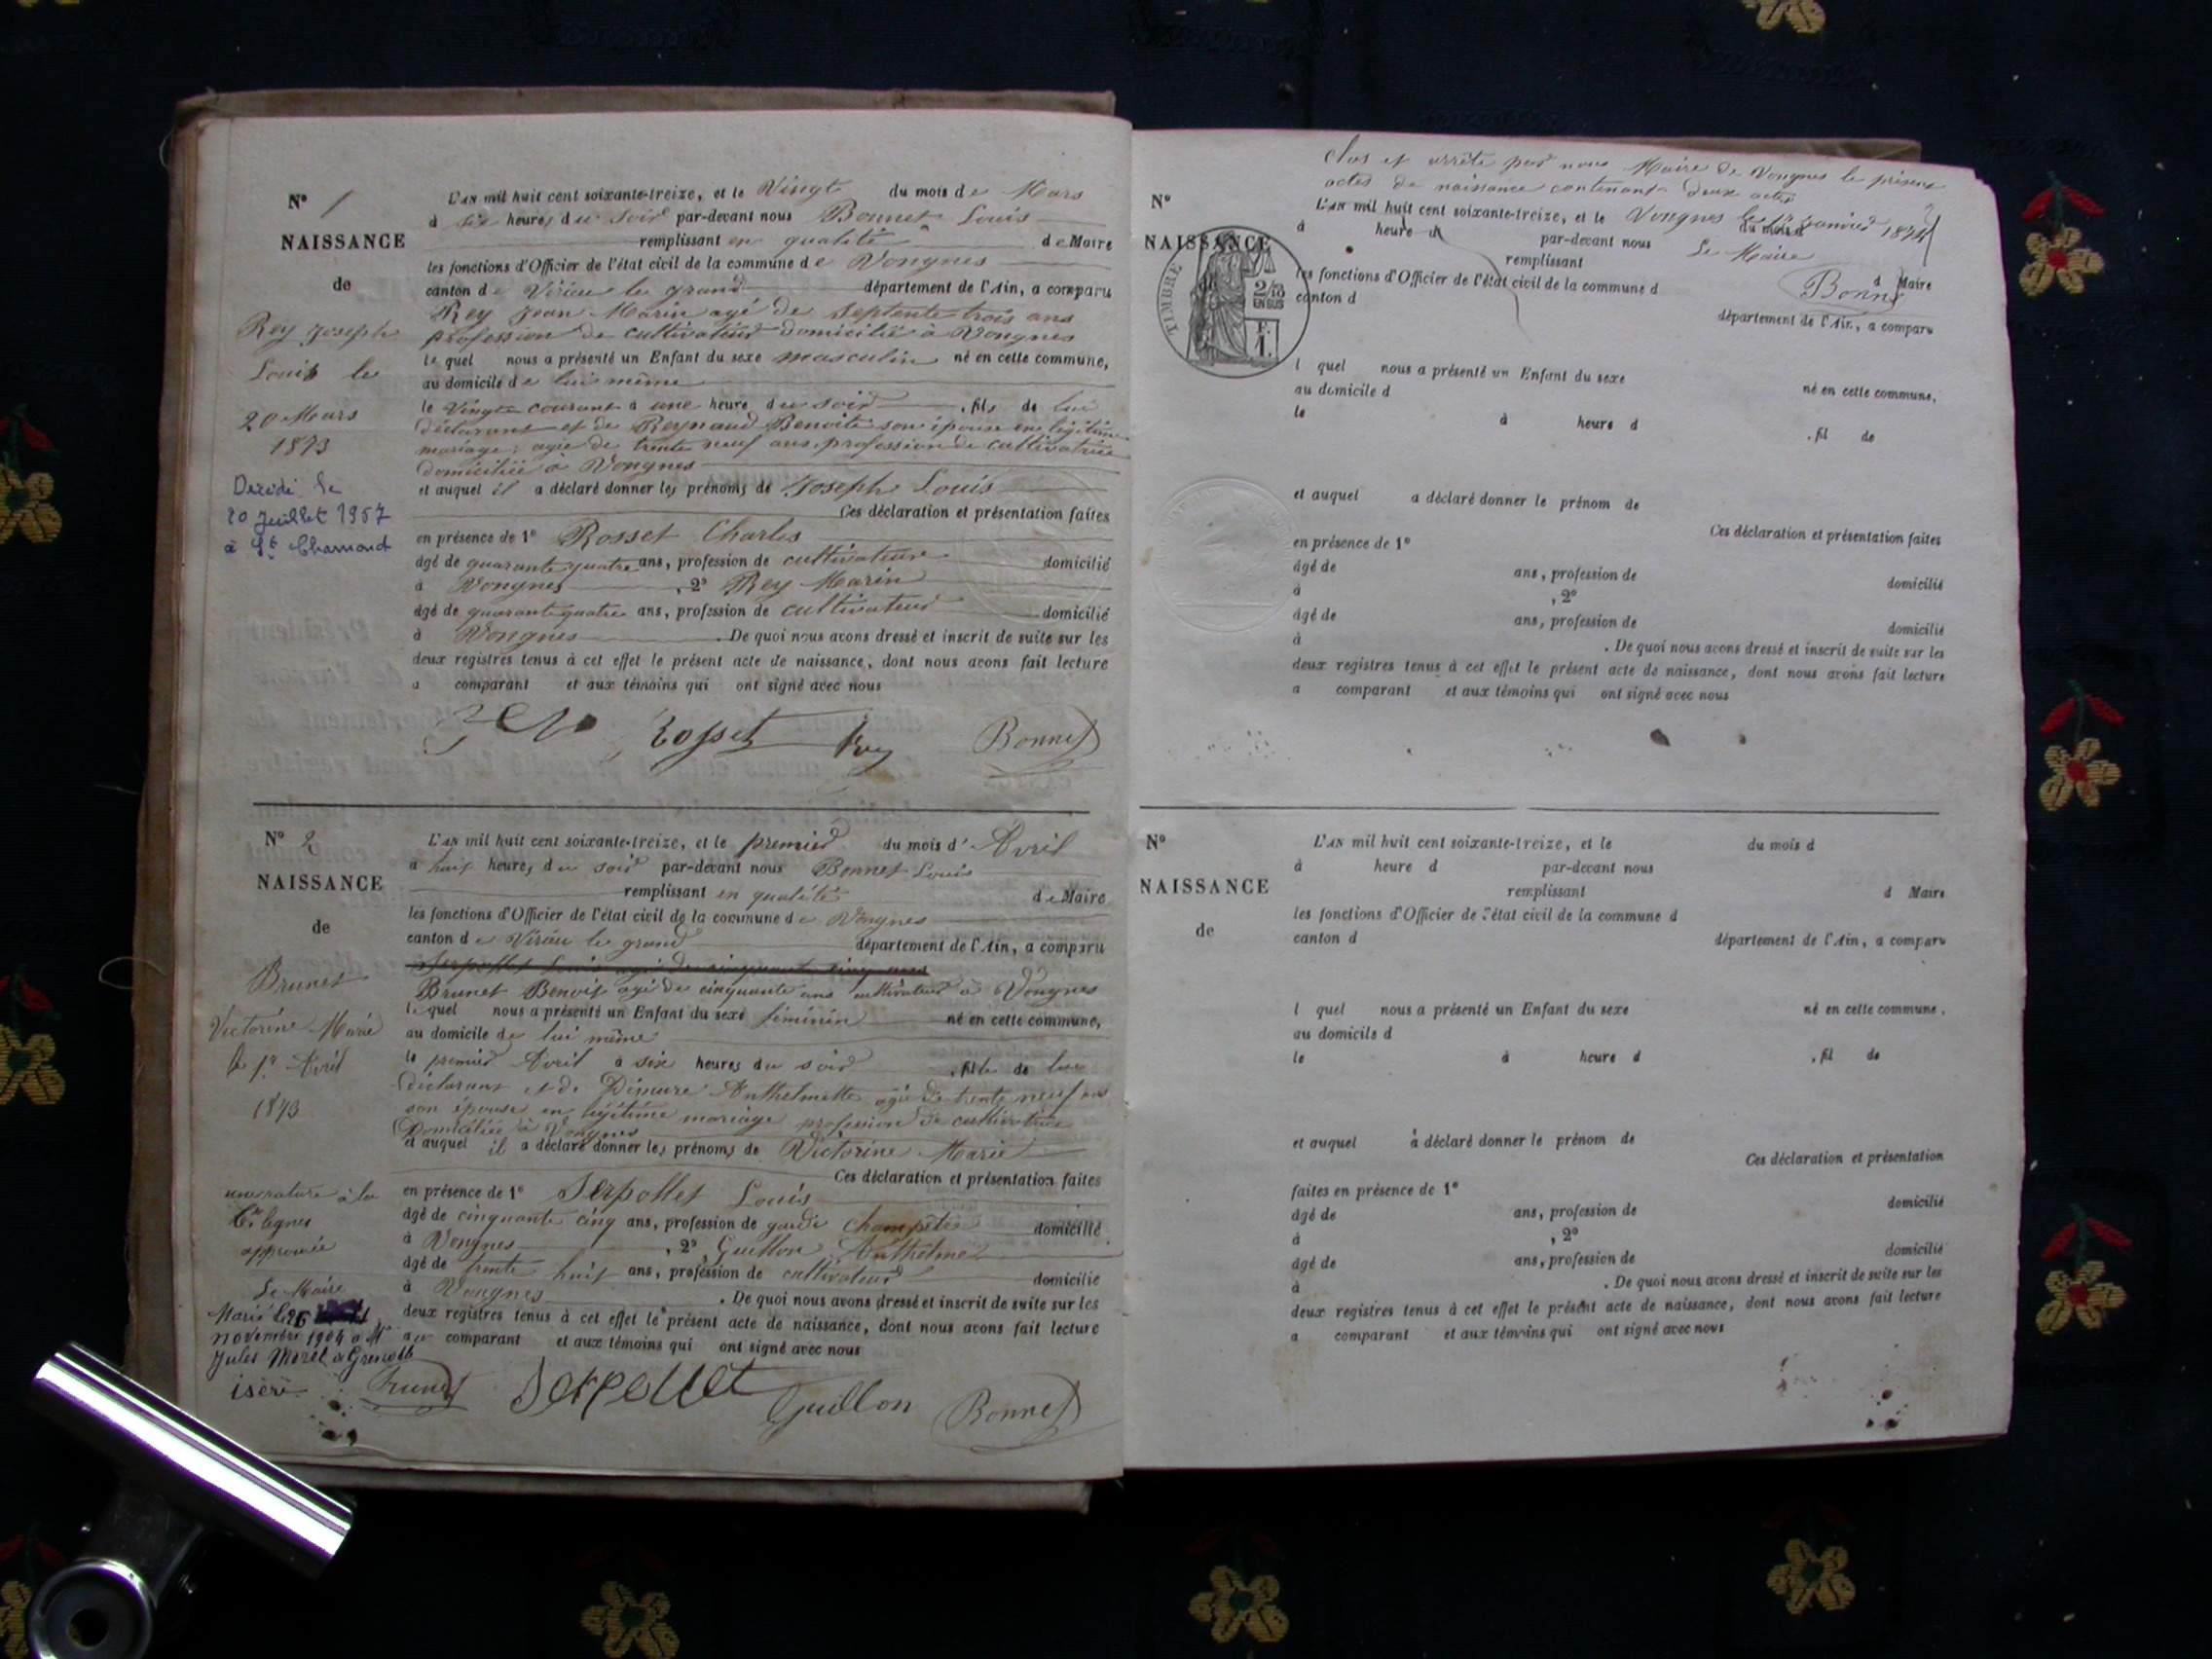 N° 1
NAISSANCE
de
Rey Joseph
Louis le
20 Mars
1873
Décédé le
20 Juillet 1957
à St Chamond
L'AN mil huit cent soixante-treize, et le Vingt du mois de Mars
à six heures du soir par-devant nous Bonnet Louis
remplissant en qualité de Maire
les fonctions d'Officier de l'état civil de la commune de Vongnes
canton de Virieu le grand département de l'Ain, a comparu
Rey Jean Marin agé de septente trois ans
profession de cultivateur domicilié à Vongnes
le quel nous a présenté un Enfant du sexe masculin né en cette commune,
au domicile de lui même
le Vingt courant à une heure du soir , fils de lui
déclarant et de Reynaud Benoite son épouse en légitime
mariage, agée de trente neuf ans, profession de cultivatrice
domiciliée à Vongnes
et auquel il a déclaré donner les prénoms de Joseph Louis
Ces déclaration et présentation faites
en présence de 1° Rosset Charles
âgé de quarante quatre ans, profession de cultivateur domicilié
à Vongnes , 2° Rey Marin
âgé de quarante quatre ans, profession de cultivateur domicilié
à Vongnes . De quoi nous avons dressé et inscrit de suite sur les
deux registres tenus à cet effet le présent acte de naissance, dont nous avons fait lecture
a comparant et aux témoins qui ont signé avec nous
Rosset Rey Bonnet
N° 2
NAISSANCE
de
Brunet
Victorine Marie
le 1er Avril
1873
une rature à la
6e lignes
approuvée
Le Maire
Marié le 26
novembre 1904 a Mr
Jules Morel a Grenoble
isère
L'AN mil huit cent soixante-treize, et le premier du mois d'Avril
à huit heures du soir par-devant nous Bonnet Louis
remplissant en qualité de Maire
les fonctions d'Officier de l'état civil de la commune de Vongnes
canton de Virieu le grand département de l'Ain, a comparu
Serpollet Louis agé de cinquante cinq ans
Brunet Benoit agé de cinquante ans cultivateur à Vongnes
le quel nous a présenté un Enfant du sexe féminin né en cette commune,
au domicile de lui même
le premier Avril à six heures du soir , fille de lui
déclarant et de Dimure Anthelmette agée de trente neuf ans
son épouse en légitime mariage profession de cultivatrice
Domiciliée à Vongnes
et auquel il a déclaré donner les prénoms de Victorine Marie
Ces déclaration et présentation faites
en présence de 1° Serpollet Louis
âgé de cinquante cinq ans, profession de garde champêtre domicilié
à Vongnes , 2° Guillon Anthelme
âgé de trente huit ans, profession de cultivateur domicilié
à Vongnes . De quoi nous avons dressé et inscrit de suite sur les
deux registres tenus à cet effet le présent acte de naissance, dont nous avons fait lecture
au comparant et aux témoins qui ont signé avec nous
Brunet Serpollet Guillon Bonnet
Clos et arrêté par nous Maire de Vongnes le présent
actes de naissance contenant deux actes
Vongnes le 1er Janvier 1874
Le Maire
Bonnet
N°
NAISSANCE
de
TIMBRE
2/10
EN SUS
F.
1.
L'AN mil huit cent soixante-treize, et le du mois d
à heure d par-devant nous
remplissant d Maire
les fonctions d'Officier de l'état civil de la commune d
canton d département de l'Ain, a comparu
l quel nous a présenté un Enfant du sexe né en cette commune,
au domicile d
le à heure d , fil de
et auquel a déclaré donner le prénom de
Ces déclaration et présentation faites
en présence de 1°
âgé de ans, profession de domicilié
à , 2°
âgé de ans, profession de domicilié
à . De quoi nous avons dressé et inscrit de suite sur les
deux registres tenus à cet effet le présent acte de naissance, dont nous avons fait lecture
a comparant et aux témoins qui ont signé avec nous
N°
NAISSANCE
de
L'AN mil huit cent soixante-treize, et le du mois d
à heure d par-devant nous
remplissant d Maire
les fonctions d'Officier de l'état civil de la commune d
canton d département de l'Ain, a comparu
l quel nous a présenté un Enfant du sexe né en cette commune,
au domicile d
le à heure d , fil de
et auquel a déclaré donner le prénom de
Ces déclaration et présentation
faites en présence de 1°
âgé de ans, profession de domicilié
à , 2°
âgé de ans, profession de domicilié
à . De quoi nous avons dressé et inscrit de suite sur les
deux registres tenus à cet effet le présent acte de naissance, dont nous avons fait lecture
a comparant et aux témoins qui ont signé avec nous